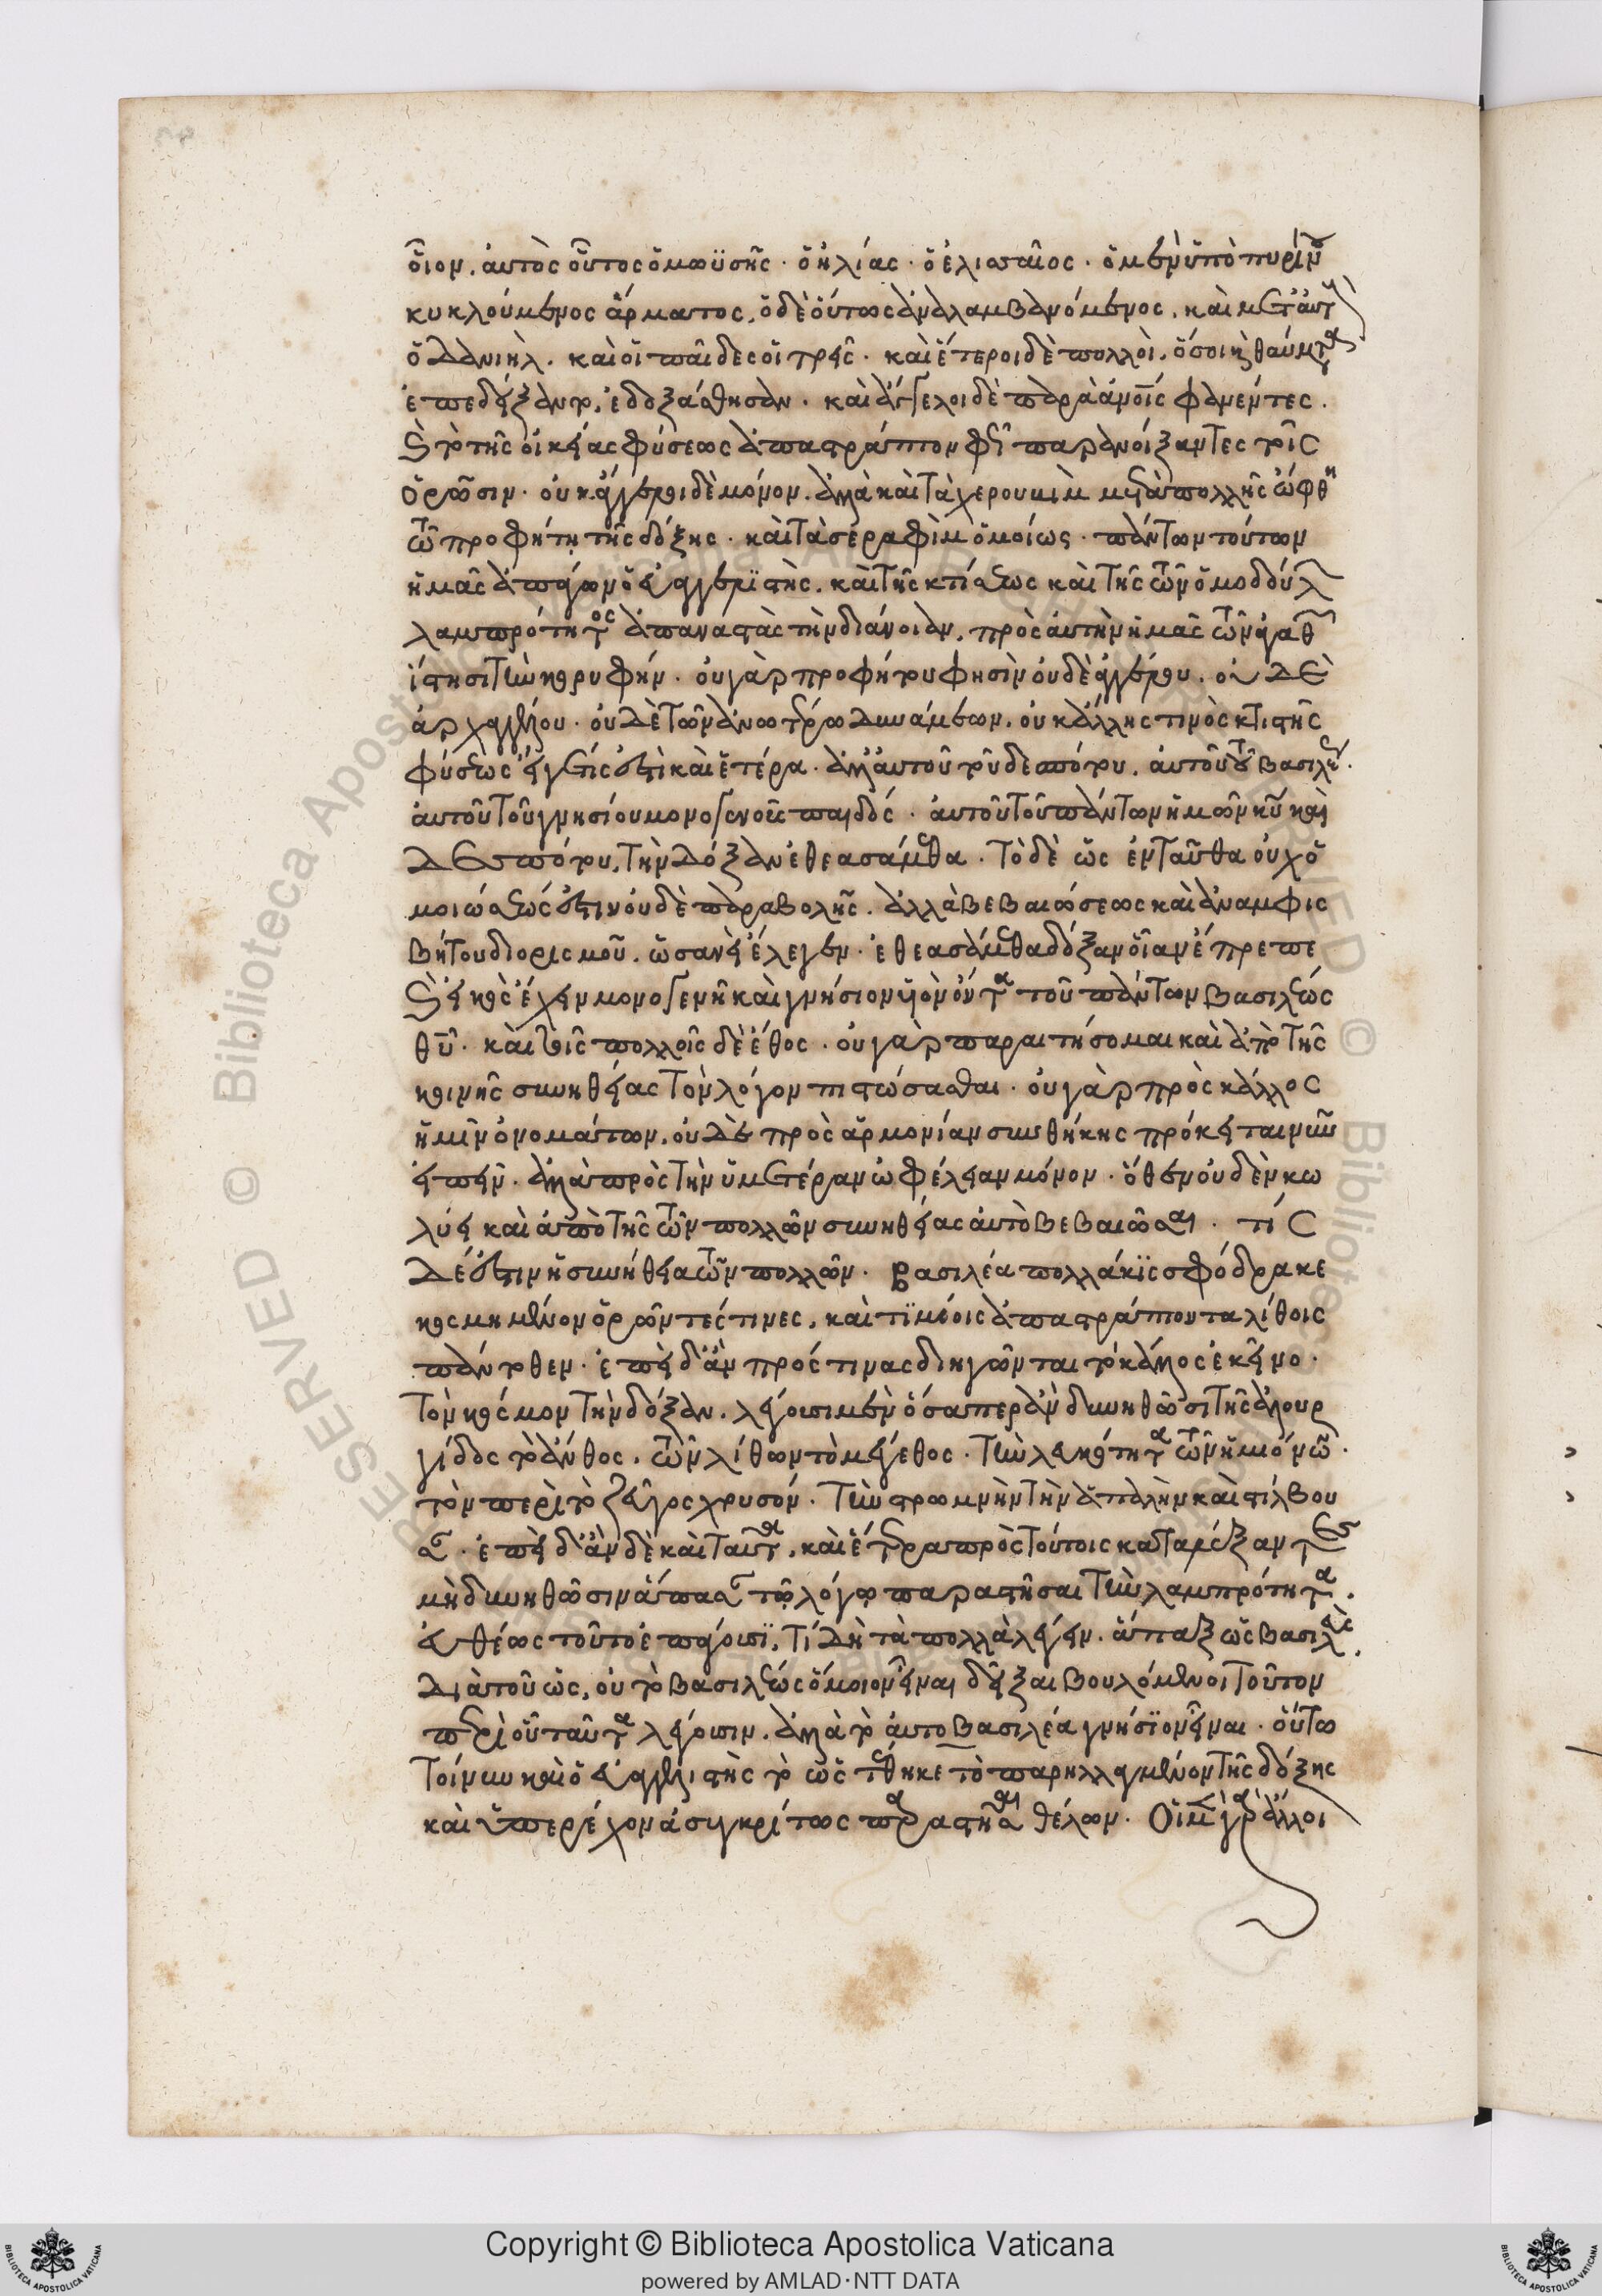 οἷον. αὐτὸς οὗτος ὁ μωϋσῆς · ὁ ἠλίας · ὁ ἐλισσαῖος · ὁ μὲν ὑπὸ πυρίν
κυκλούμενος ἅρματος, ὁ δὲ οὕτως ἀναλαμβανόμενος. καὶ μετ' αὐτ
ὁ δανιὴλ. καὶ οἱ παῖδες οἱ τρεῖς · καὶ ἕτεροι δὲ πολλοὶ, ὅσοι κ θαύματα
ἐπεδείξαντο, ἐδοξάσθησαν · καὶ ἄγγελοι δὲ παρὰ ἀνοις φανέντες.
καὶ τὸ τῆς οἰκείας φύσεως ἀπαστράπτον φῶς παρανοίξαντες τοῖς
ὁρῶσιν · οὐκ ἄγγελοι δὲ μόνον. ἀλλὰ καὶ τὰ χερουβὶμ μετὰ πολλῆς ὤφθη
τῶ προφήτη τῆς δόξης · καὶ τὰ σεραφὶμ ὁμοίως · πάντων τούτων
ἡμᾶς ἀπάγων ὁ εὐαγγελιστὴς. καὶ τῆς κτίσεως καὶ τῆς τῶν ὁμοδούλ
λαμπρότητος ἀπαναστὰς τὴν διάνοιαν, πρὸς αὐτὴν ἡμᾶς τῶν ἀγαθ
ἵστησι τὴν κορυφήν · οὐ γὰρ προφήτου φησὶν οὐδὲ ἀγγέλου. οὐδὲ
ἀρχαγγέλου · οὐδὲ τῶν ἀνωτέρω δυνάμεων. οὐκ ἄλλης τινὸς κτιστῆς
φύσεως εἴ γε τίς ἐστὶ καὶ ἑτέρα · ἀλλ' αὐτοῦ τοῦ δεσπότου. αὐτοῦ τοῦ βασιλέ.
αὐτοῦ τοῦ γνησίου μονογενοῦς παιδός · αὐτοῦ τοῦ πάντων ἡμῶν κυ καὶ
δεσπότου, τὴν δόξαν ἐθεασάμεθα · τὸ δὲ ὡς ἐνταῦθα οὐχ ὁ
μοιώσεώς ἐστιν οὐδὲ παραβολῆς. ἀλλὰ βεβαιώσεως καὶ ἀναμφισ
βήτου διορισμοῦ. ὡσανεὶ ἔλεγεν · ἐθεασάμεθα δόξαν οἵαν ἔπρεπε
καὶ εἰκὸς ἔχειν μονογενῆ καὶ γνήσιον υἱὸν ὄντα τοῦ πάντων βασιλέως
θυ · καὶ τοῖς πολλοῖς δὲ ἔθος · οὐ γὰρ παραιτήσομαι καὶ ἀπὸ τῆς
κοινῆς συνηθείας τὸν λόγον πιστώσασθαι · οὐ γὰρ πρὸς κάλλος
ἡμῖν ὀνομάτων, οὐδὲ πρὸς ἁρμονίαν συνθήκης πρόκειται νῦν
εἰπεῖν · ἀλλὰ πρὸς τὴν ὑμετέραν ὠφέλειαν μόνον · ὅθεν οὐδὲν κω
λύει καὶ ἀπὸ τῆς τῶν πολλῶν συνηθείας αὐτὸ βεβαιῶσαι · τίς
δέ ἐστιν ἡ συνήθεια τῶν πολλῶν · βασιλέα πολλάκις σφόδρα κε
κοσμημένον ὁρῶντές τινες, καὶ τιμίοις ἀπαστράπτοντα λίθοις
πάντοθεν · ἐπειδὰν πρός τινας διηγῶνται τὸ κάλλος ἐκεῖνο ·
τὸν κόσμον τὴν δόξαν. λέγουσι μὲν ὅσαπερ ἂν δυνηθῶσι τῆς ἁλουρ
γίδος τὸ ἄνθος. τῶν λίθων τὸ μέγεθος · τὴν λευκότητα τῶν ἡμιόνω ·
τὸν περὶ τὸ ζεῦγος χρυσόν · τὴν στρωμνὴν τὴν ἁπαλὴν καὶ στίλβου
σαν · ἐπειδὰν δὲ καὶ ταῦτα, καὶ ἕτερα πρὸς τούτοις καταλέξαντες
μὴ δυνηθῶσιν ἅπασαν τῷ λόγῳ παραστῆσαι τὴν λαμπρότητα.
εὐθέως τοῦτο ἐπάγουσι, τί δὴ τὰ πολλὰ λέγειν. ἅπαξ ὡς βασιλεὺς.
διὰ τοῦ ὡς, οὐ τὸ βασιλέως ὅμοιον εἶναι δεῖξαι βουλόμενοι τοῦτον
περὶ οὗ ταῦτα λέγουσιν. ἀλλὰ τὸ αὐτοβασιλέα γνήσιον εἶναι · οὕτω
τοίνυν καὶ ὁ εὐαγγελιστὴς τὸ ὡς τέθηκε τὸ παρηλλαγμένον τῆς δόξης
καὶ ὑπερέχον ἀσυγκρίτως παραστῆσαι θέλων · Οἱ μὲν γὰρ ἄλλοι
Copyright © Biblioteca Apostolica Vaticana
powered by AMLAD·NTT DATA